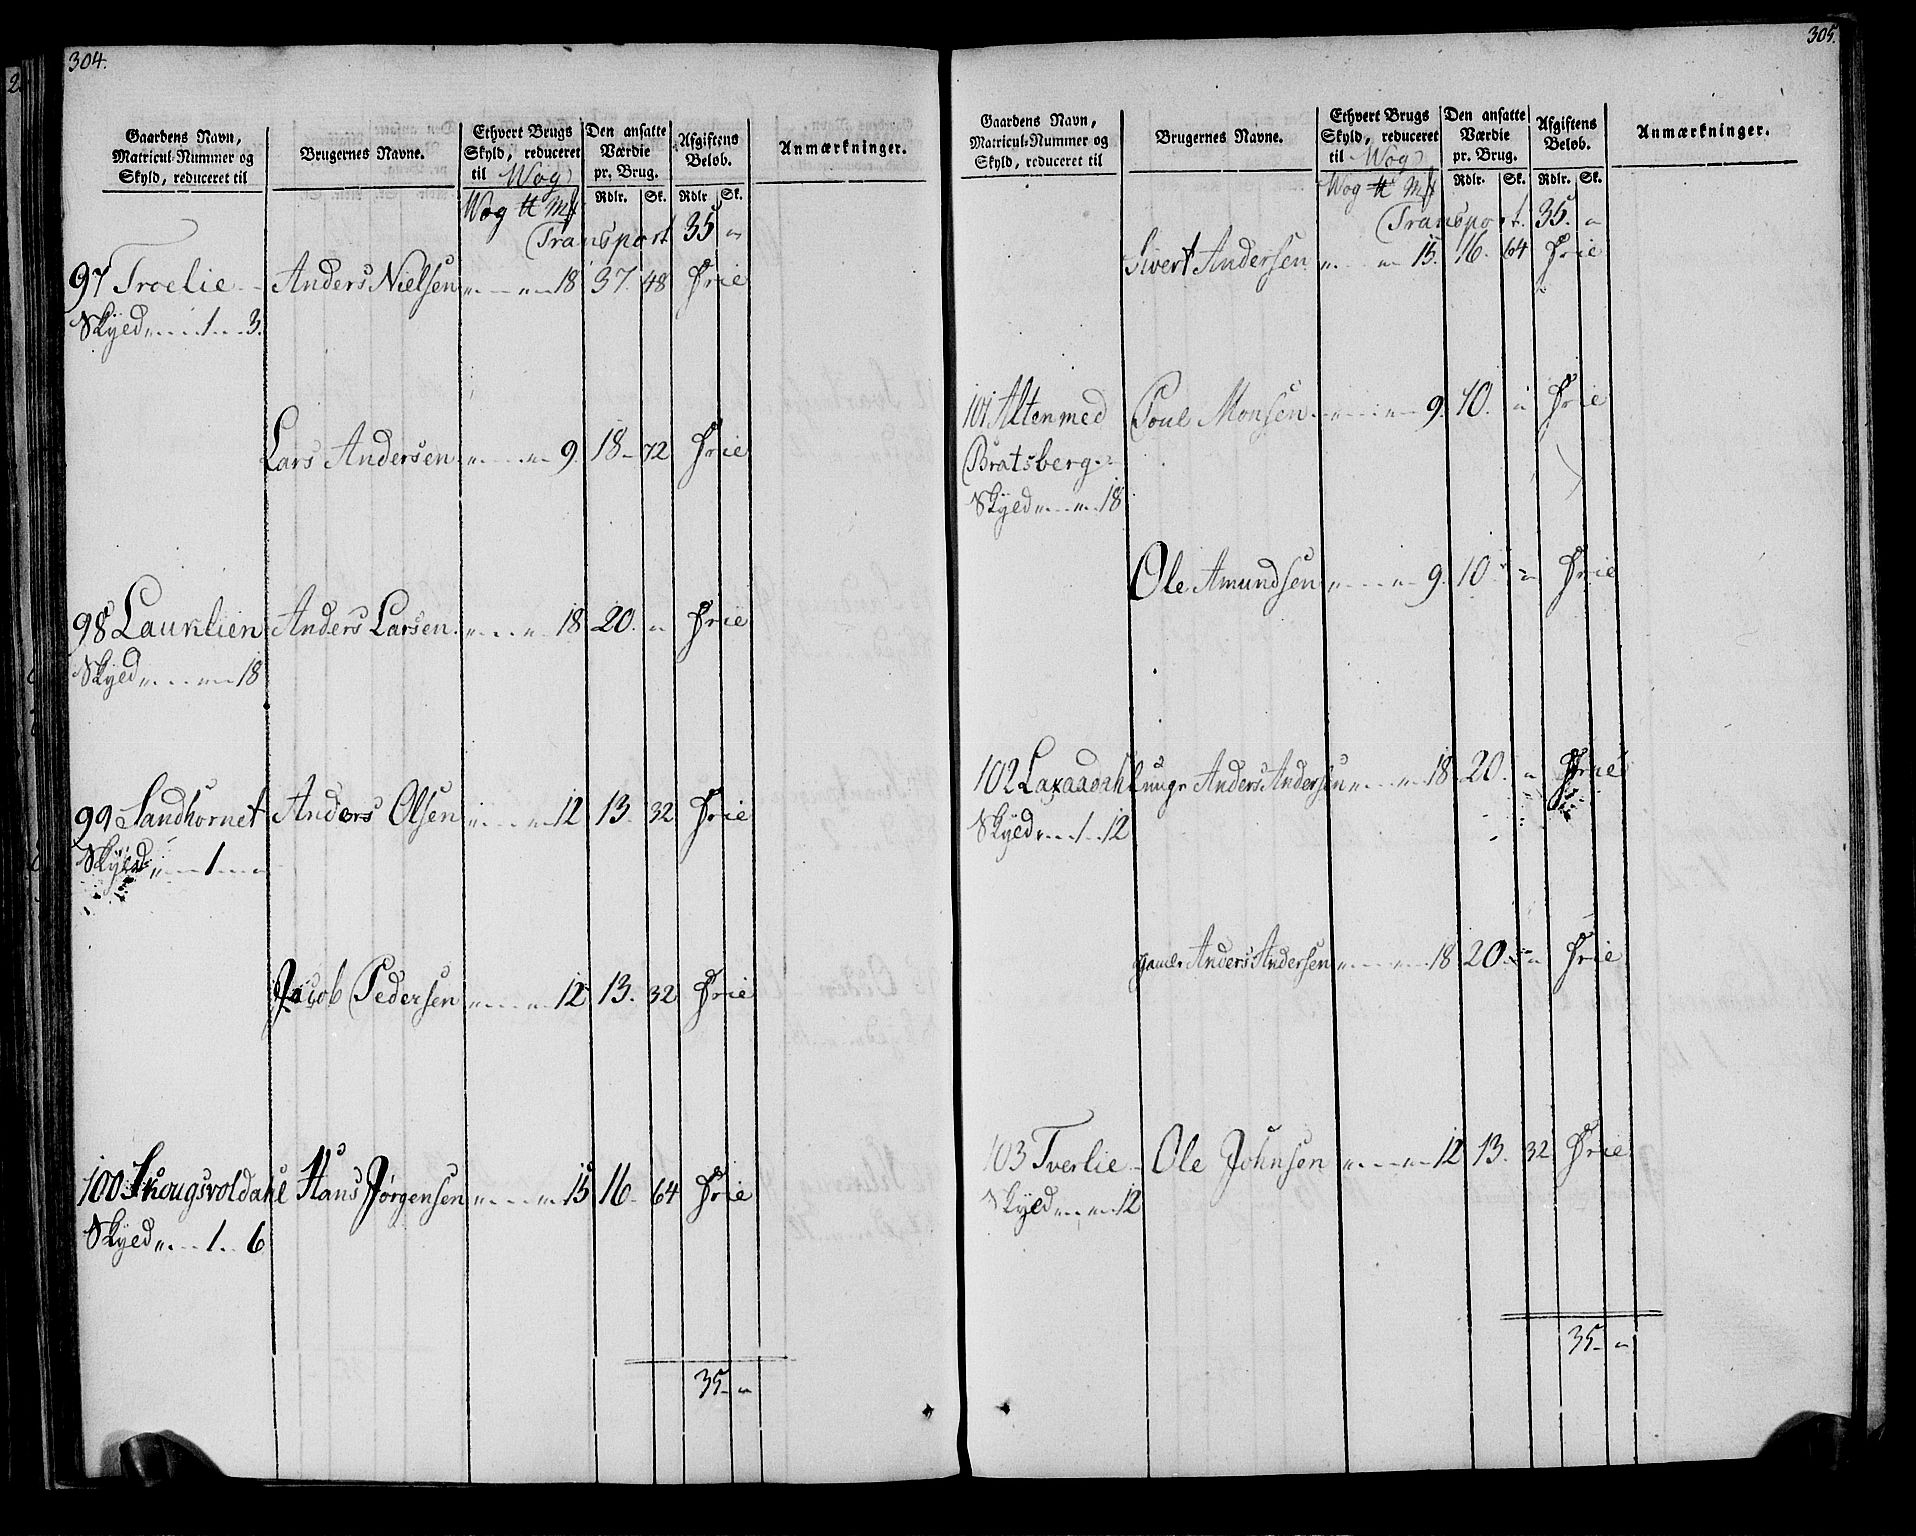 304.
Gaardens Navn, Matricul-Nummer og Skyld, reduceret til
Brugernes Navne.
Ethvert Brugs Skyld, reduceret til Wog
Den ansatte Værdie pr. Brug.
Afgiftens Beløb.
Anmærkninger.
Wog ℔ Mk Rdlr. Sk. Rdlr Sk.
Transport 35 "
97 Troelie Anders Nielsen " " 18 37. 48 Frie
Skyld " 1 " 3.
Lars Andersen " " 9. 18 - 72 Frie
98 Laurilien Anders Larsen " " 18 20. " Frie
Skyld " " 18
99 Sandhornet Anders Olsen " " 12 13. 32 Frie
Skyld " 1 "
Jacob Pedersen " " 12 13. 32 Frie
100 Skougsvoldahl Hans Jørgensen " " 15 16. 64 Frie
Skyld " 1 " 6
35 - "
305.
Gaardens Navn, Matricul-Nummer og Skyld, reduceret til
Brugernes Navne.
Ethvert Brugs Skyld, reduceret til Wog
Den ansatte Værdie pr. Brug.
Afgiftens Beløb.
Anmærkninger.
Wog ℔ Mk Rdlr. Sk. Rdlr. Sk.
Transport. 35. "
Sivert Andersen " " 15. 16. 64 Frie
101 Alten med Poul Monsen " " 9. 10. " Frie
Bratsberg
Skyld " " 18
Ole Amundsen " " 9. 10. " Frie
102 Laxaadahl unge Anders Andersen " " 18 20. " Frie
Skyld " 1 " 12
gamle Anders Andersen " " 18 20. " Frie
103 Tverlie Ole Johnsen " " 12 13. 32 Frie
Skyld " " 12
35 - "